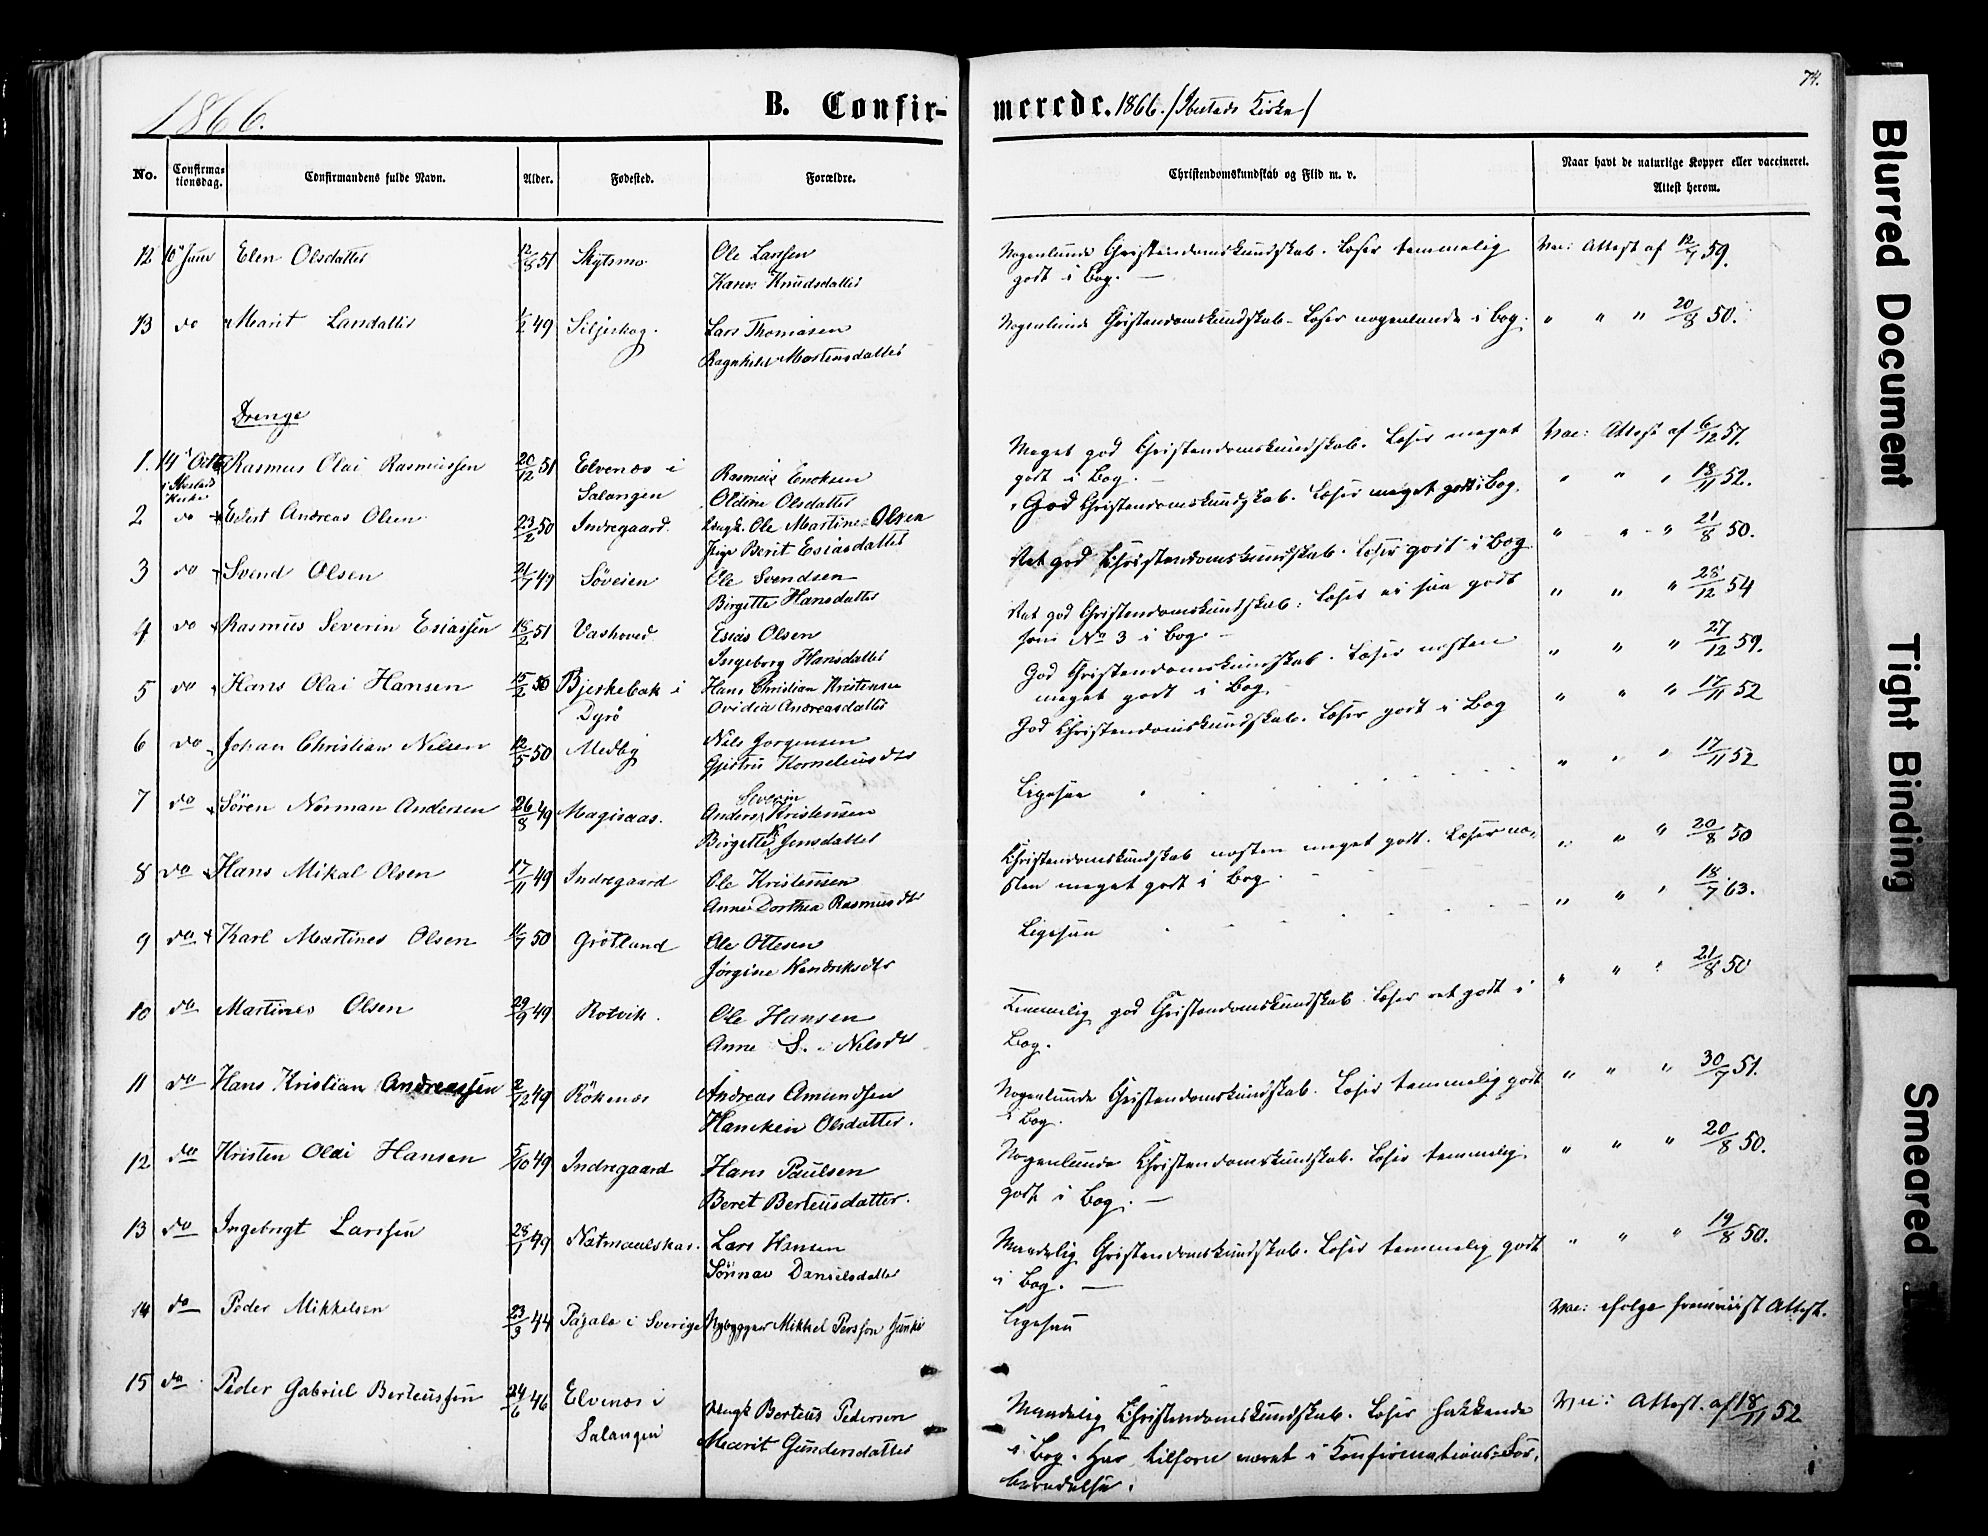 74.
1866.
B. Confir-
merede. 1866. /Ibestads Kirke/
No.
Confirma-
tionsdag.
Confirmandens fulde Navn.
Alder.
Fødested.
Forældre.
Christendomskundskab og Flid m. v.
Naar havt de naturlige Kopper eller vaccineret.
Attest herom.
12 10' Juni Elen Olsdatter 12/8 51 Skytsmo Ole Larssen
Karen Knudsdatter
Nogenlunde Christendomskundskab. Læser temmelig
godt i Bog. —
Vac: Attest af 12/7 59.
13 do Marit Larsdatter 1/2 49 Siljeshog. Lars Thomasen
Ragnhild Mortensdatter
Nogenlunde Christendomskundskab. Læser nogenlunde i Bog.
" " " 20/8 50.
Drenge
1. 14' Octb Rasmus Olai Rasmussen 20/12 51 Elvenæs i Rasmus Encksen
i Ibestad
Kirke
Salangen Oldine Olsdatter
Meget god Christendomskundskab. Læser meget
godt i Bog.
Vac: Attest af 6/12 57.
2 do Edert Andreas Olsen 23/2 50 Indregaard. Ungk. Ole Martines Olsen
Pige Berit Esiasdatter
God Christendomskundskab. Læser meget godt i Bog.
" " " 18/11 52.
3 do Svend Olsen 21/7 49 Søveien Ole Svendsen
Birgitte Hansdatter
Ret god Christendomskundskab. Læser godt i Bog
" " " 21/8 50.
4 do Rasmus Severin Esiassen 18/2 51 Vashoved Esias Olsen
Ingeborg Hansdatter
Ret god Christendomskundskab. Læser ei saa godt
som No 3 i Bog. —
" " " 28/12 54
5 do Hans Olai Hansen 15/2 50 Bjerkebak i Hans Christian Kristensen
Dyrø Ovidia Andreasdatter
God Christendomskundskab. Læser næsten
meget godt i Bog.
" " " 27/12 59.
6 do Johan Christian Nilsen 12/5 50 Medby Nils Jorgensen
Gjertru Kornelius dtr
God Christendomskundskab. Læser godt i Bog
" " " 17/11 52
7 do Søren Norman Andersen 26/8 49 Magisaas. Anders Severin Kristensen
Birgitte K. Jensdatter
Ligesaa
" " " 17/11 52
8 do Hans Mikal Olsen 17/11 49 Indregaard Ole Kristensen
Anne Dorthea Rasmusdtr
Christendomskundskab næsten meget godt. Læser næ-
sten meget godt i Bog.
" " " 20/8 50
9 do Karl Martines Olsen 11/7 50 Grøtland Ole Ottesen
Jørgine Hendriksdtr
Ligesaa
" " " 18/7 63.
10 do Martines Olsen 29/9 49 Rotvik. Ole Hansen
Anne S. Nilsdtr
Temmelig god Christendomskundskab. Læser ret godt i
Bog.
" " " 21/8 50
11 do Hans Kristian Andreassen 2/12 49 Rökenæs Andreas Amundsen
Hancken Olsdatter.
Nogenlunde Christendomskundskab. Læser temmelig godt
i Bog.
" " " 30/7 51.
12 do Kristen Olai Hansen 5/10 49 Indregaard Hans Paulsen
Beret Berteusdatter.
Nogenlunde Christendomskundskab. Læser temmelig
godt i Bog. —
" " " 20/8 50.
13 do Ingebrigt Larssen 28/1 49 Natmaalskar. Lars Hansen
Sönnav Danielsdatter
Maadelig Christendomskundskab. Læser temmelig godt
i Bog. —
" " " 19/8 50.
14 do Peder Mikkelsen 23/3 44 Pajala i Sverige Nybygger Mikkel Persson Junki
Ligesaa
Vac: ifølge fremviist Attest.
15 do Peder Gabriel Berteussen 24/6 46 Elvenæs i Ungk Berteus Pedersen
Salangen Marit Gundersdatter
Maadelig Christendomskundskab. Læser hakkende
i Bog. Har tilforn været i Konfirmations-For-
beredelse.
Vac: Attest. af 18/11 52
Blurred Document
Tight Binding
Smeared